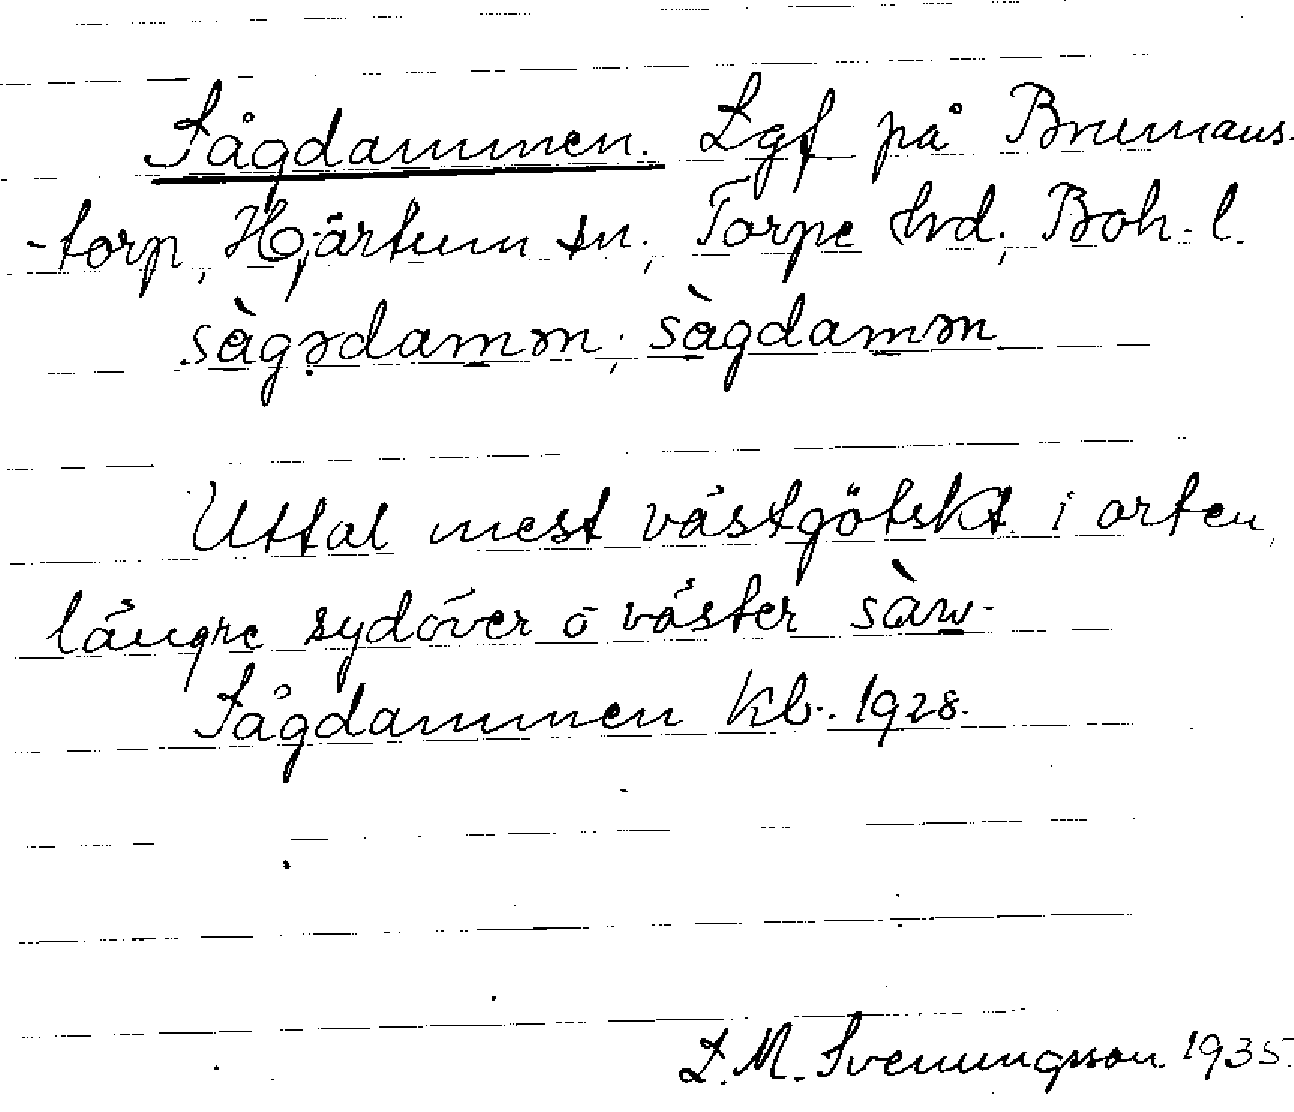 Sågdammen. Lgf på Brumans-
-torp, Hjärtum sn, Torpe hd, Boh. l.
sàgədamən, sàgdamən
Uttal mest västgötskt i orten,
längre sydöver o väster sàw-
Sågdammen kb. 1928.
L. M. Svenungsson 1935.